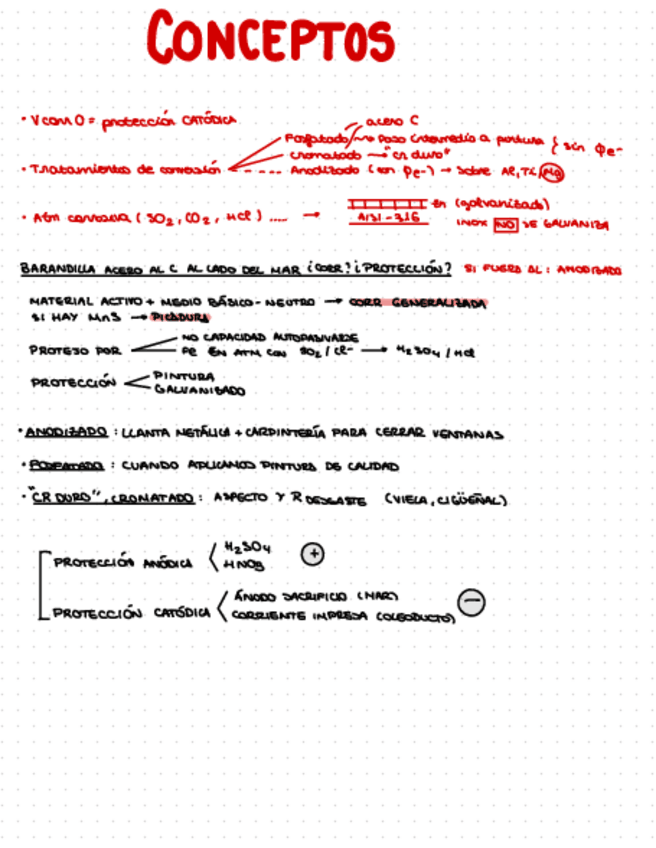 CONCEPTOS
• Vcorr 0 = protección CATÓDICA
acero C
Fosfatado → Paso intermedio a pintura } sin φe-
• Tratamientos de corrosión
cromatado → "cr duro"
Anodizado (con φe-) → sobre Al, Ti, Mg
• Atm corrosiva (SO2, CO2, HCl) ..... →
Zn (galvanizado)
AISI-316
INOX NO SE GALVANIZA
BARANDILLA ACERO AL C AL LADO DEL MAR ¿CORR? ¿PROTECCIÓN? SI FUERA AL: ANODIZADO
MATERIAL ACTIVO + MEDIO BÁSICO-NEUTRO → CORR GENERALIZADA
SI HAY MnS → PICADURA
NO CAPACIDAD AUTOPASIVARSE
PROTEJO POR
Fe EN ATM CON SO2/Cl- → H2SO4/HCl
PROTECCIÓN
PINTURA
GALVANIZADO
• ANODIZADO: LLANTA METÁLICA + CARPINTERÍA PARA CERRAR VENTANAS
• FOSFATADO: CUANDO APLICAMOS PINTURA DE CALIDAD
• "CR DURO", CROMATADO: ASPECTO Y R DESGASTE (VIELA, CIGÜEÑAL)
PROTECCIÓN ANÓDICA
H2SO4
HNO3
+
PROTECCIÓN CATÓDICA
ÁNODO SACRIFICIO (MAR)
CORRIENTE IMPRESA (OLEODUCTO)
−